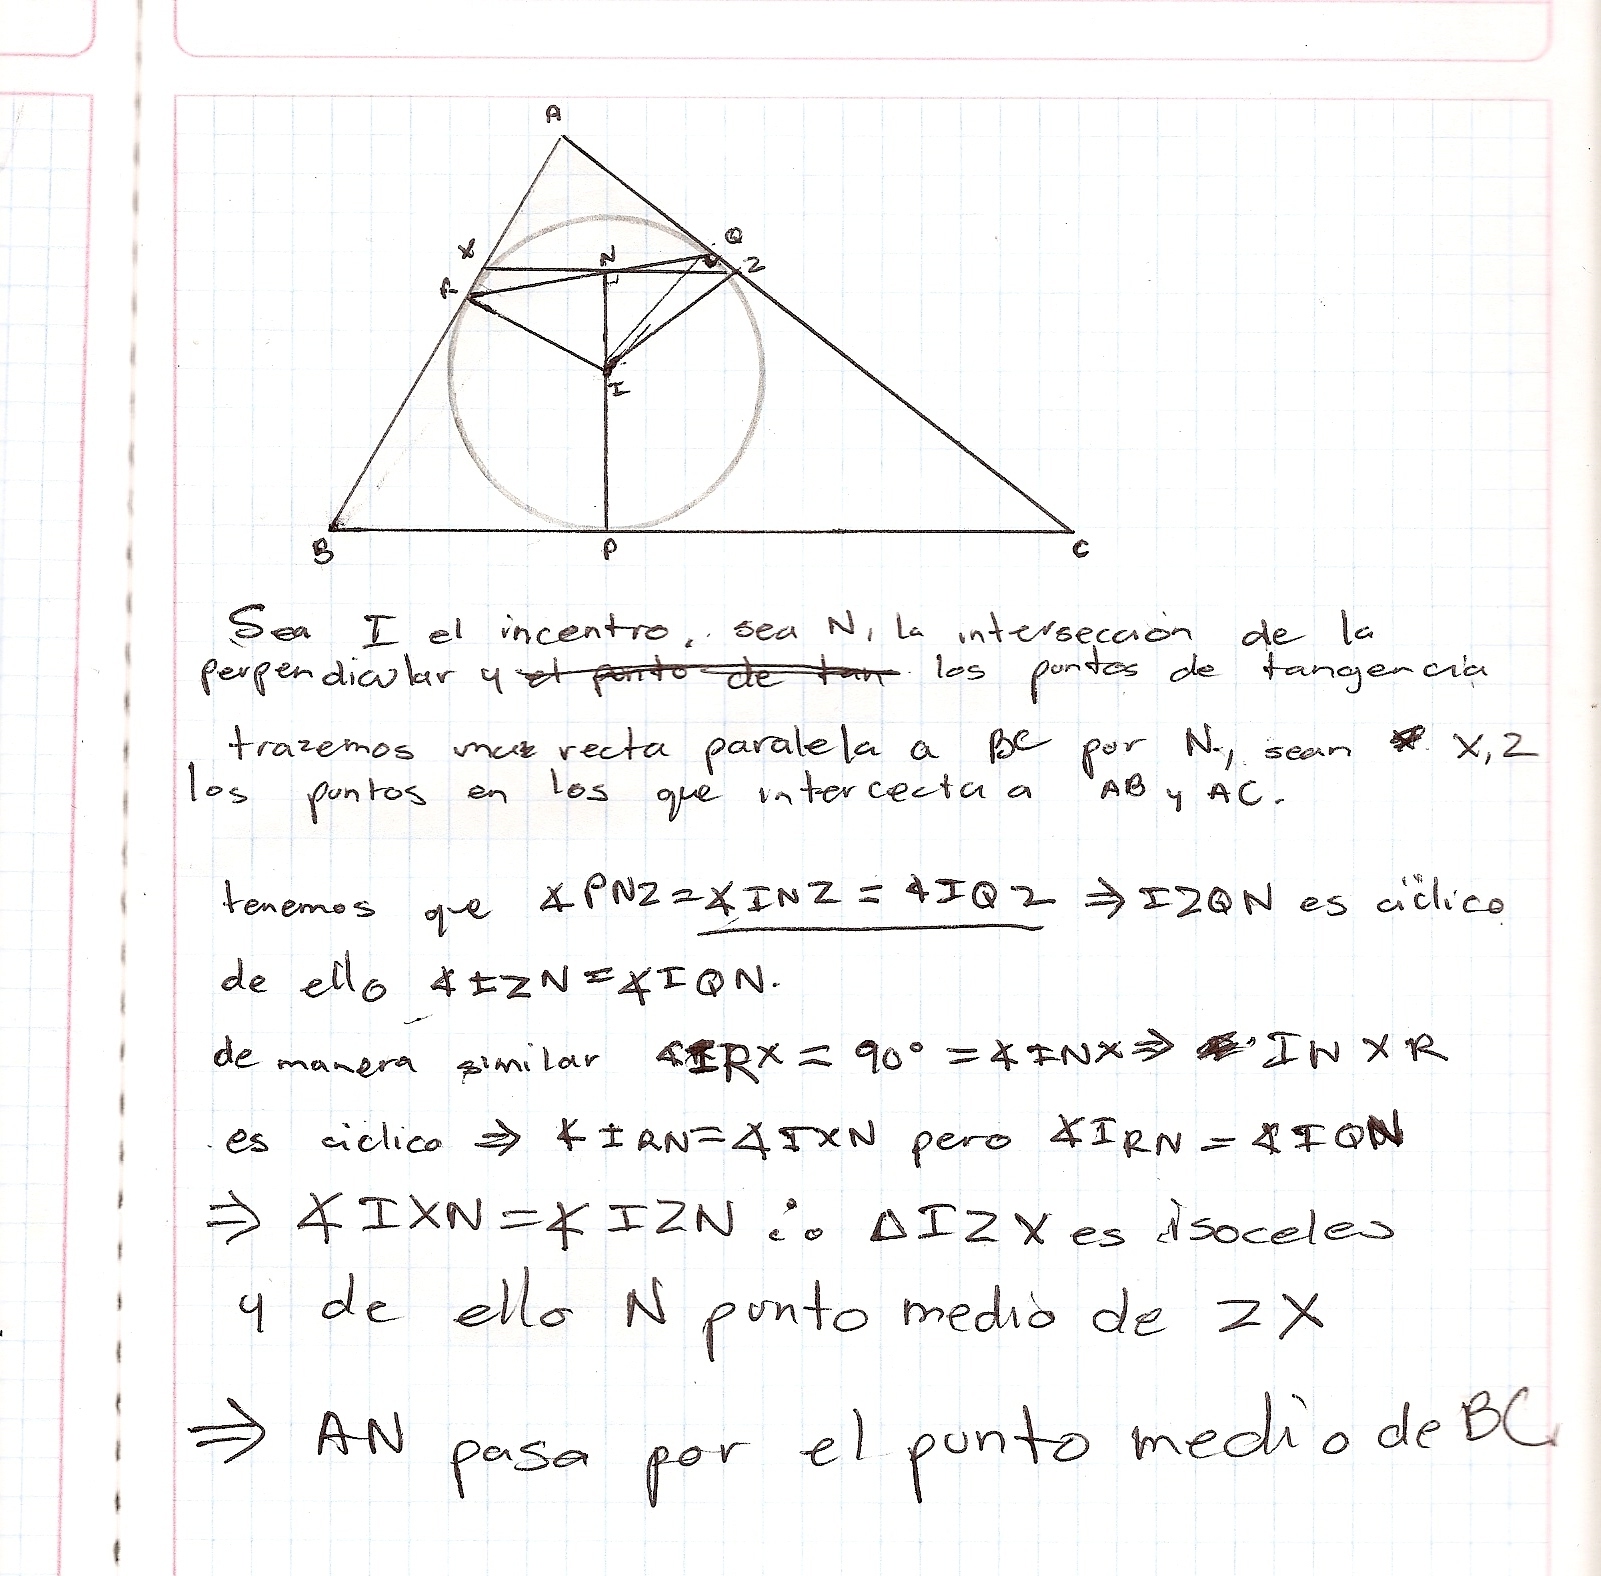 A
X
N
Q
Z
R
I
B
P
C
Sea I el incentro, sea N, la intersección de la
perpendicular y el punto de tan los puntos de tangencia
trazemos una recta paralela a BC por N, sean X, Z
los puntos en los que intercecta a AB y AC.
tenemos que ∡PNZ=∡INZ = ∡IQZ ⇒ IZQN es ciclico
de ello ∡IZN=∡IQN.
de manera similar ∡IRX = 90° = ∡INX ⇒ INXR
es ciclico ⇒ ∡IRN=∡IXN pero ∡IRN = ∡IQN
⇒ ∡IXN=∡IZN ∴ ΔIZX es isoceles
y de ello N punto medio de ZX
⇒ AN pasa por el punto medio de BC.